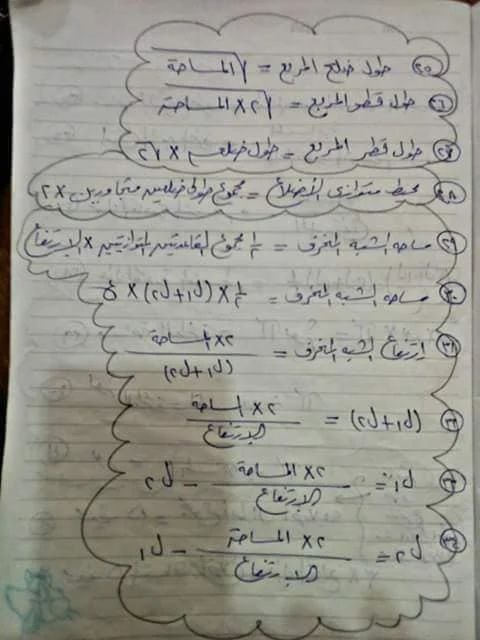 ٢٥ طول ضلع المربع = √المساحة
٢٦ طول قطر المربع = √٢×المساحة
٢٧ طول قطر المربع = طول ضلعه × √٢
٢٨ محيط متوازى الأضلاع = مجموع طولى ضلعين متجاورين × ٢
٢٩ مساحه الشبه المنحرف = ١/٢ مجموع القاعدتين المتوازيتين × الإرتفاع
٣٠ مساحه الشبه المنحرف = ١/٢ × (ل١+ل٢) × ع
٣١ ارتفاع الشبه المنحرف = ٢× المساحة / (ل١+ل٢)
٣٢ (ل١+ل٢) = ٢× المساحة / الإرتفاع
٣٣ ل١ = ٢× المساحة / الإرتفاع - ل٢
٣٤ ل٢ = ٢× المساحة / الإرتفاع - ل١